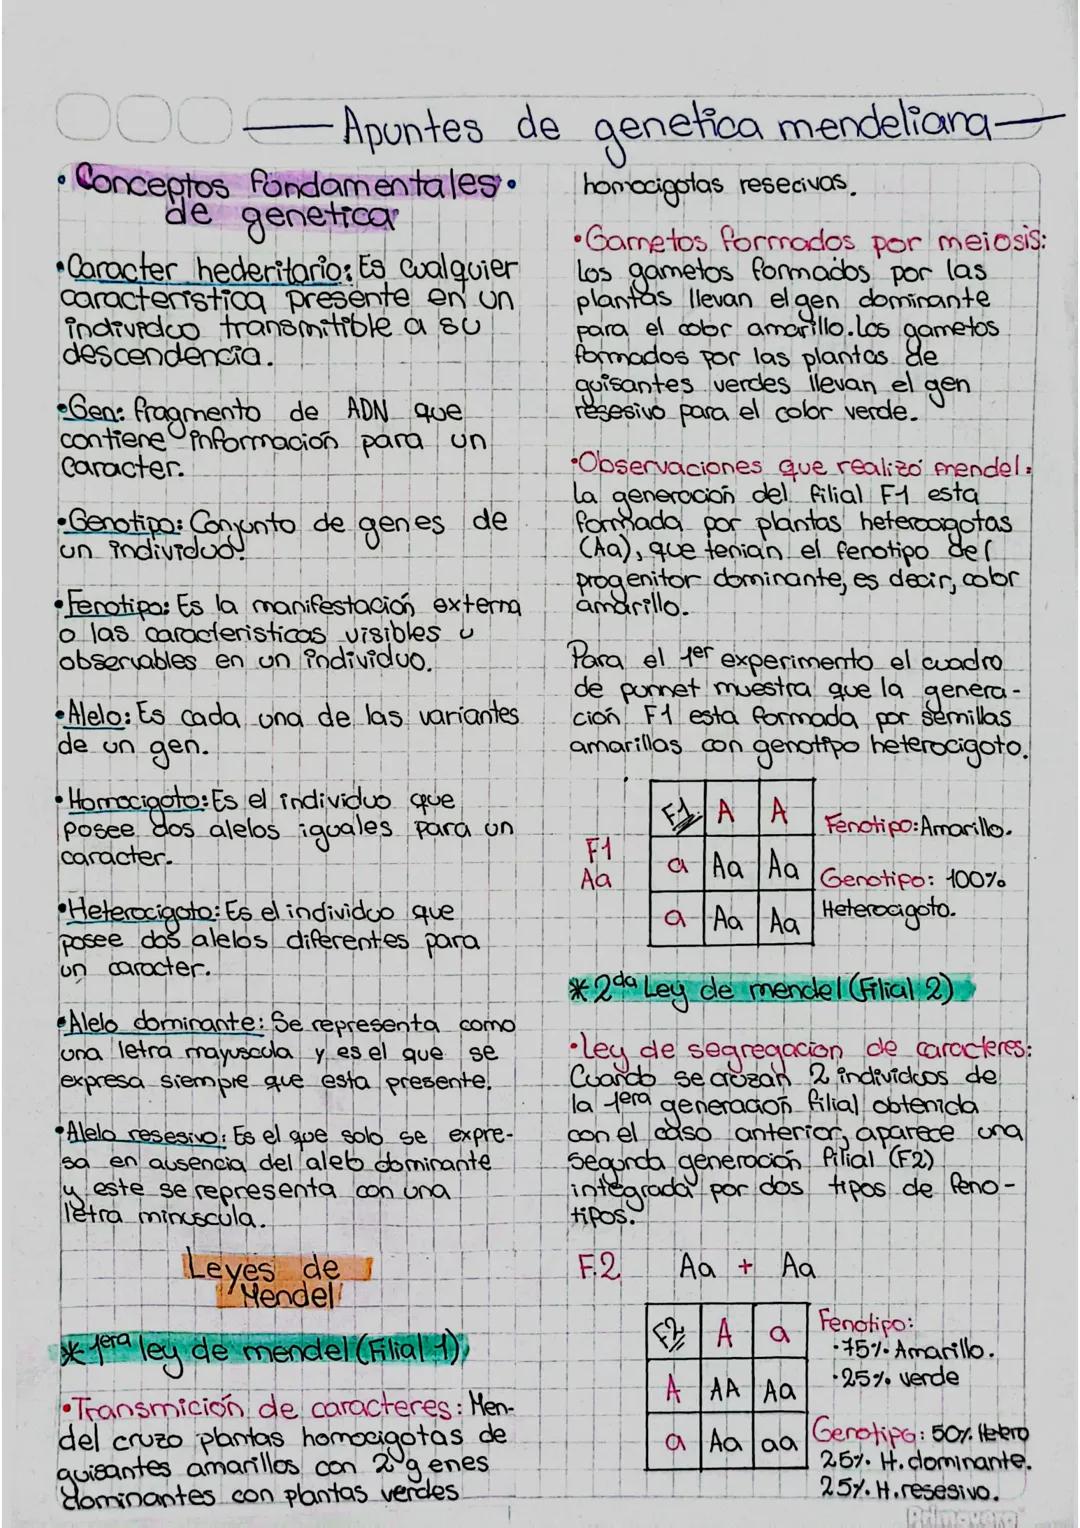 Apuntes de genetica mendeliana
• Conceptos fundamentales •
de genetica
• Caracter hederitario: Es cualquier
caracteristica presente en un
individuo transmitible a su
descendencia.
• Gen: fragmento de ADN que
contiene información para un
caracter.
• Genotipo: Conjunto de genes de
un individuo.
• Fenotipo: Es la manifestación externa
o las caracteristicas visibles u
observables en un individuo.
• Alelo: Es cada una de las variantes
de un gen.
• Homocigoto: Es el individuo que
posee dos alelos iguales para un
caracter.
• Heterocigoto: Es el individuo que
posee dos alelos diferentes para
un caracter.
• Alelo dominante: Se representa como
una letra mayuscula y es el que se
expresa siempre que esta presente.
• Alelo resesivo: Es el que solo se expre-
sa en ausencia del alelo dominante
y este se representa con una
letra minuscula.
Leyes de
Mendel
* 1era ley de mendel (Filial 1)
• Transmición de caracteres: Men-
del cruzo plantas homocigotas de
guisantes amarillos con 2 genes
dominantes con plantas verdes
homocigotas resecivas.
• Gametos formados por meiosis:
Los gametos formados por las
plantas llevan el gen dominante
para el color amarillo. Los gametos
formados por las plantas de
guisantes verdes llevan el gen
resesivo para el color verde.
• Observaciones que realizó mendel:
La generación del filial F1 esta
formada por plantas heterocigotas
(Aa), que tenian el fenotipo del
progenitor dominante, es decir, color
amarillo.
Para el 1er experimento el cuadro
de punnet muestra que la genera-
ción F1 esta formada por semillas
amarillas con genotipo heterocigoto.
F1
Aa
F1 A A
a Aa Aa
a Aa Aa
Fenotipo: Amarillo.
Genotipo: 100%
Heterocigoto.
* 2da Ley de mendel (Filial 2)
• Ley de segregacion de caracteres:
Cuando se cruzan 2 individuos de
la 1era generación filial obtenida
con el caso anterior, aparece una
segunda generación filial (F2)
integrada por dos tipos de feno-
tipos.
F.2 Aa + Aa
F2 A a
A AA Aa
a Aa aa
Fenotipo:
• 75% Amarillo.
• 25% verde
Genotipo: 50% Hetero
25% H. dominante.
25% H. resesivo.
Primavera